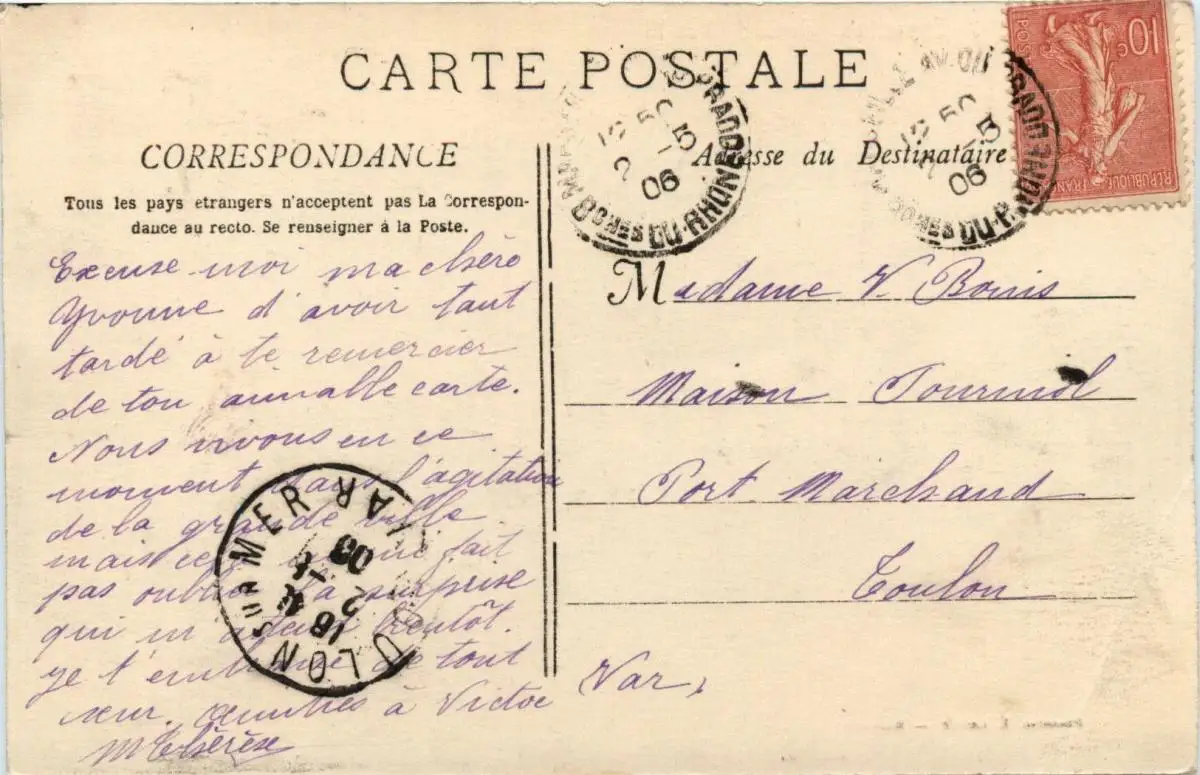 CARTE POSTALE
CORRESPONDANCE
Tous les pays etrangers n'acceptent pas La Correspon-
dance au recto. Se renseigner à la Poste.
Excuse moi ma chère
Yvonne d'avoir tant
tardé à te remercier
de ton aimable carte.
Nous vivons en ce
moment dans l'agitation
de la grande ville
mais cela ne me fait
pas oublier la surprise
qui m'attend bientôt.
Je t'embrasse de tout
cœur. à Victor
M Thérèse
Adresse du Destinataire
Madame V. Bonis
Maison Tournol
Port Marchand
Toulon
Var,
10c
POSTES
RÉPUBLIQUE FRANÇAISE
PRADO
BCHES DU-RHONE
5
06
PRADO
DU-RHONE
5
06
TOULON SUR MER
VAR
06